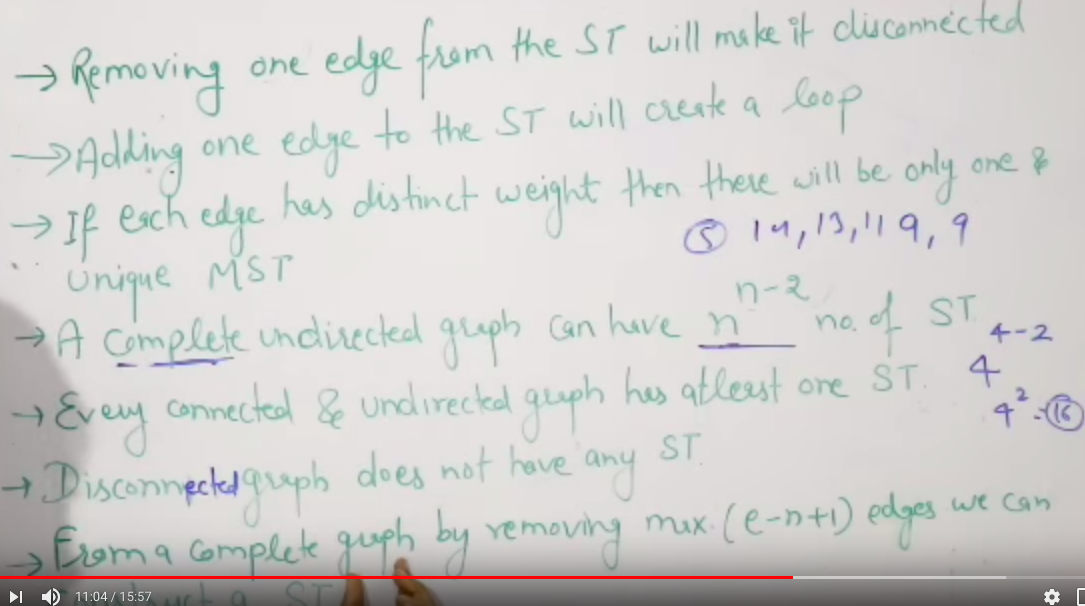 → Removing one edge from the ST will make it disconnected
→ Adding one edge to the ST will create a loop
→ If each edge has distinct weight then there will be only one &
unique MST
⑤ 14, 13, 11 9, 9
→ A complete undirected graph can have n^(n-2) no. of ST
4^(4-2)
→ Every connected & undirected graph has atleast one ST.
4^2 = ⑯
→ Disconnected graph does not have any ST.
→ From a complete graph by removing max. (e-n+1) edges we can
construct a ST
11:04 / 15:57